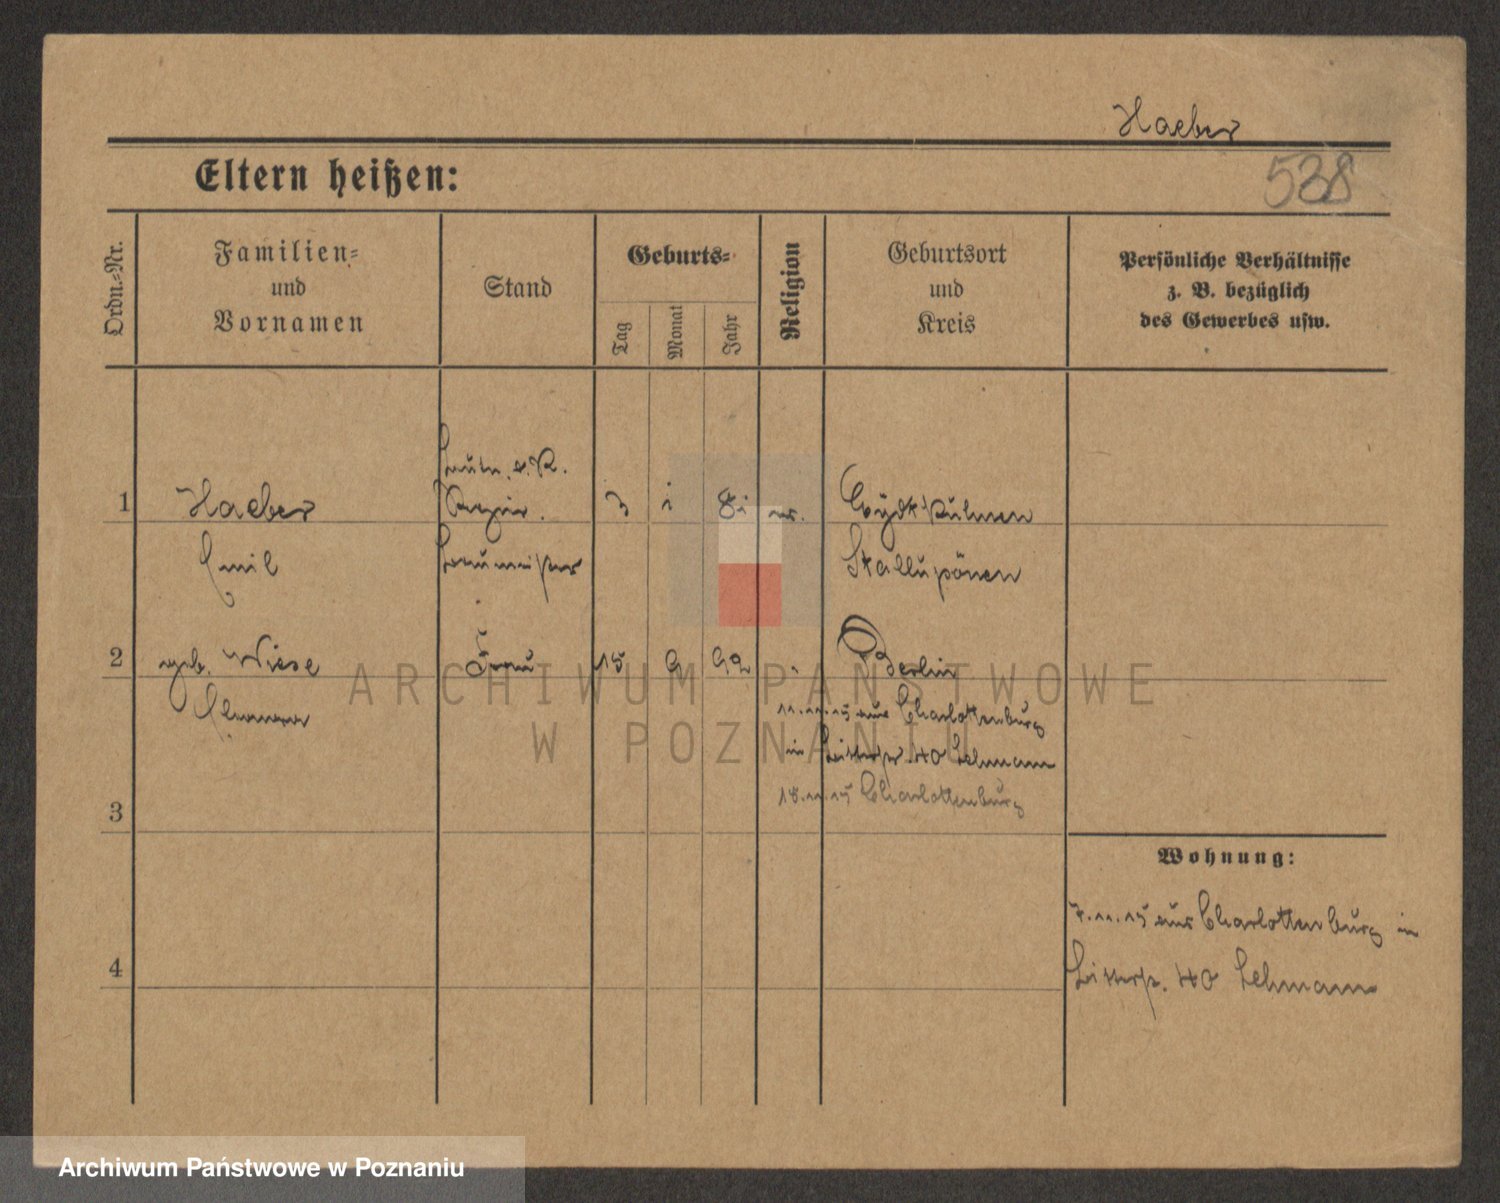 Haeber
Eltern heißen:
538
Ordn.-Nr.
Familien-
und
Vornamen
Stand
Geburts-
Tag
Monat
Jahr
Religion
Geburtsort
und
Kreis
Persönliche Verhältnisse
z. B. bezüglich
des Gewerbes usw.
Leutn. d. R.
1 Haeber Regier. 3 1 81 ev. Eydtkuhnen
Emil baumeister Stallupönen
2 geb. Wiese Frau 15 9 92 Berlin
11.11.15 aus Charlottenburg
in 40 Lehmann
18.11.15 Charlottenburg
3
Wohnung:
7.11.15 aus Charlottenburg in
40 Lehmann
4
ARCHIWUM PAŃSTWOWE
W POZNANIU
Archiwum Państwowe w Poznaniu